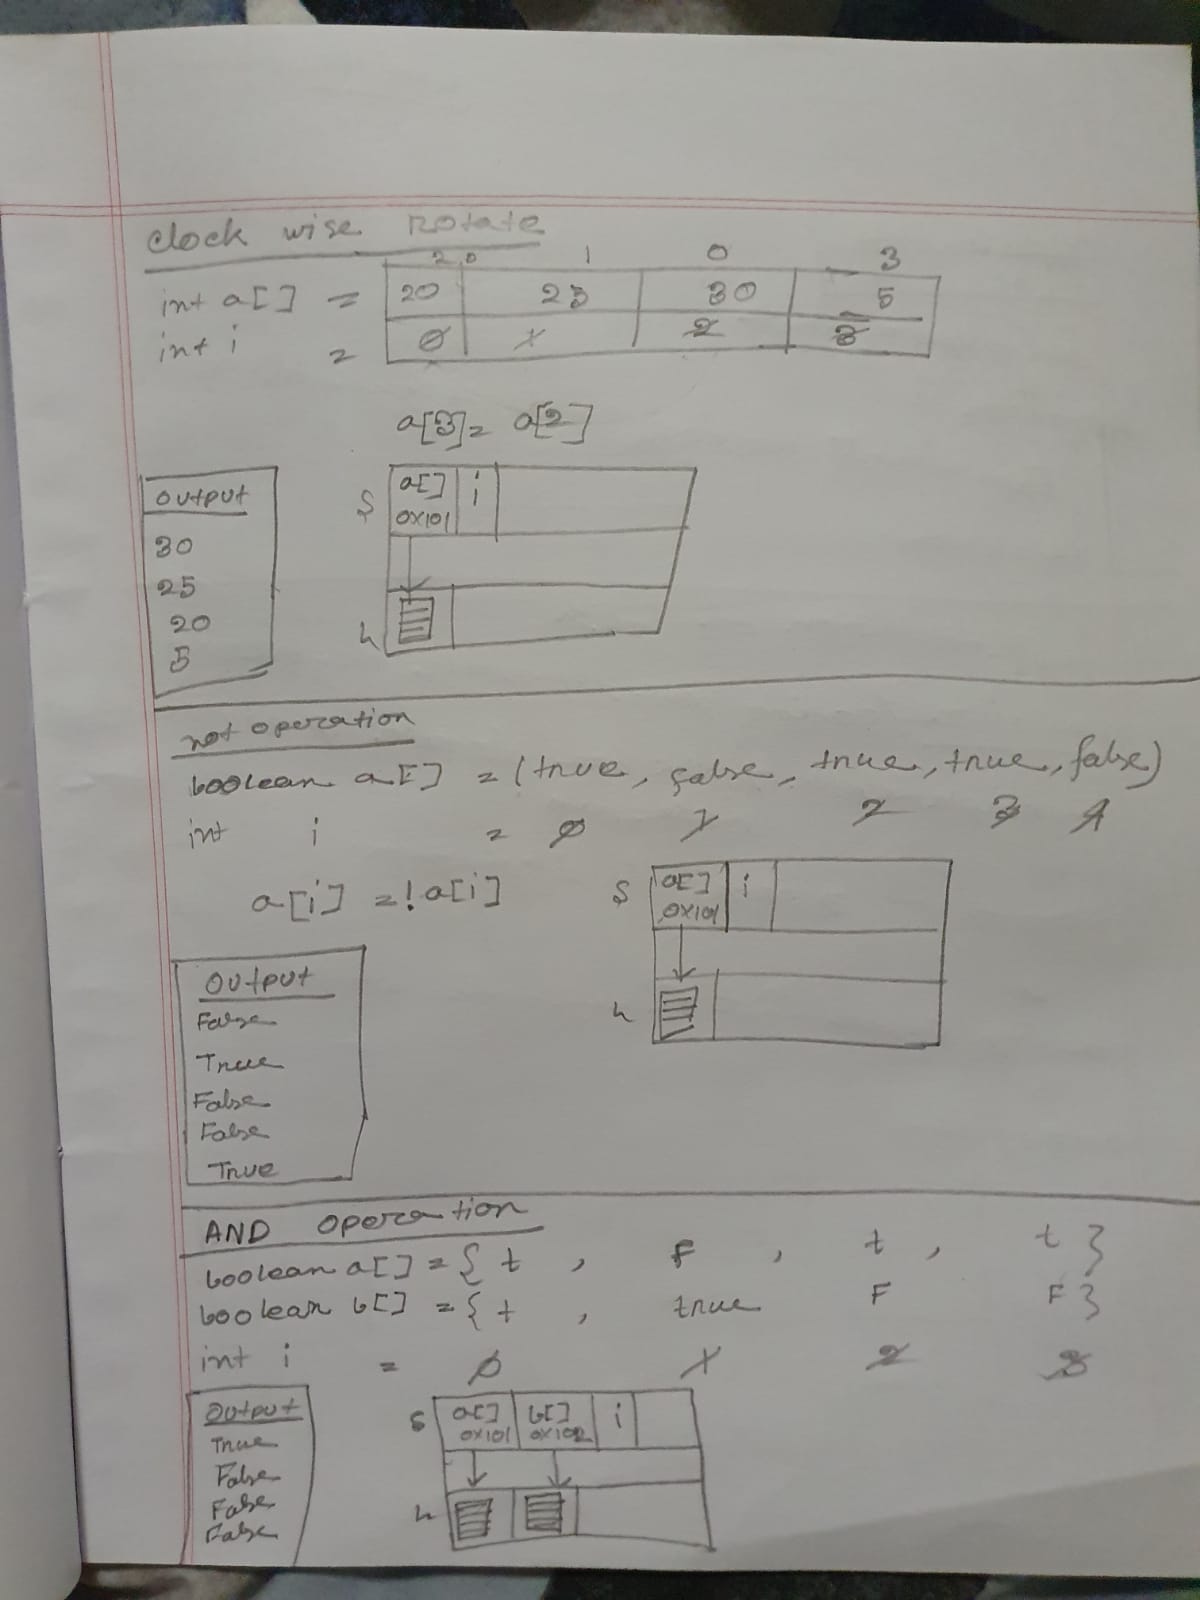 clock wise Rotate
2 0 1 0 3
int a[] = 20 25 30 5
int i = 0 1 2 3
a[3] = a[2]
output
30
25
20
5
S a[] i
0x101
h
not operation
boolean a[] = (true, false, true, true, false)
int i = 0 1 2 3 4
a[i] = !a[i]
S a[] i
0x101
h
Output
False
True
False
False
True
AND operation
boolean a[] = { t , F , t , t }
boolean b[] = { t , true F F }
int i = 0 1 2 3
Output
True
False
False
False
S a[] b[] i
0x101 0x102
h